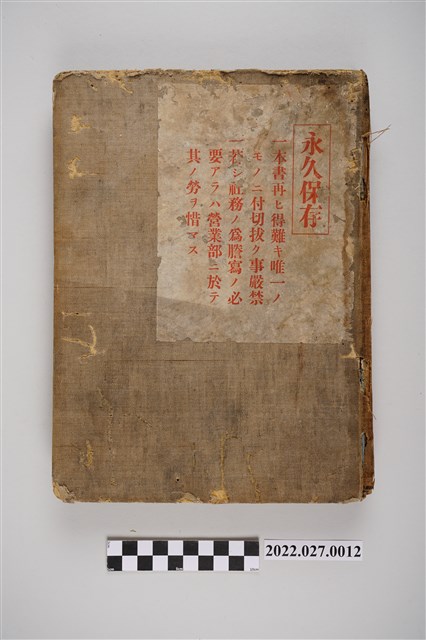 永久保存
一本書再ヒ得難キ唯一ノ
モノニ付切抜ク事嚴禁
一若シ社務ノ爲謄寫ノ必
要アラハ營業部ニ於テ
其ノ勞ヲ惜マス
2022.027.0012